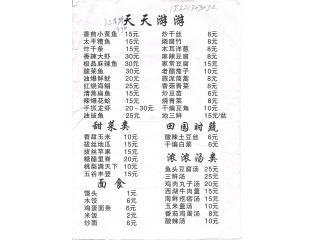 天天游游
番煎小黄鱼 15元
太平糟鱼 15元
炸干条 15元
香辣大虾 30元
极品麻辣鱼 30元
酸菜鱼 30元
油爆鲜鱿 20元
红烧海鳗 25元
清蒸扁鱼 15元
辣爆花蛤 15元
手抓龙虾 20~30元
油拔鱼 25元
炒干丝 8元
烧腐竹 8元
木耳洋葱 8元
麻辣豆腐 8元
家常豆腐 15元
老醋茄子 10元
蔬泥茼蒿 8元
香菇青菜 8元
炒豆苗 6元
烧青菜 8元
干煸豆角 10元
地三鲜 15元/盆
甜菜类
香甜玉米 10元
拔丝地瓜 15元
拔丝苹果 15元
糖醋里脊 20元
桃梨满天下 10元
五谷丰登 15元
田园时蔬
酸辣土豆丝 6元
干煸白菜 6元
浓浓汤类
鱼头豆腐汤 25元
三鲜汤 25元
鸡肉丸子汤 20元
西湖牛肉羹 15元
海鲜疙瘩汤 15元
玉米羹汤 10元
番茄鸡蛋汤 8元
酸辣汤 10元
面食
馒头 1元
水饺 6元
鸡蛋面条 6元
米饭 2元
炒面 6元